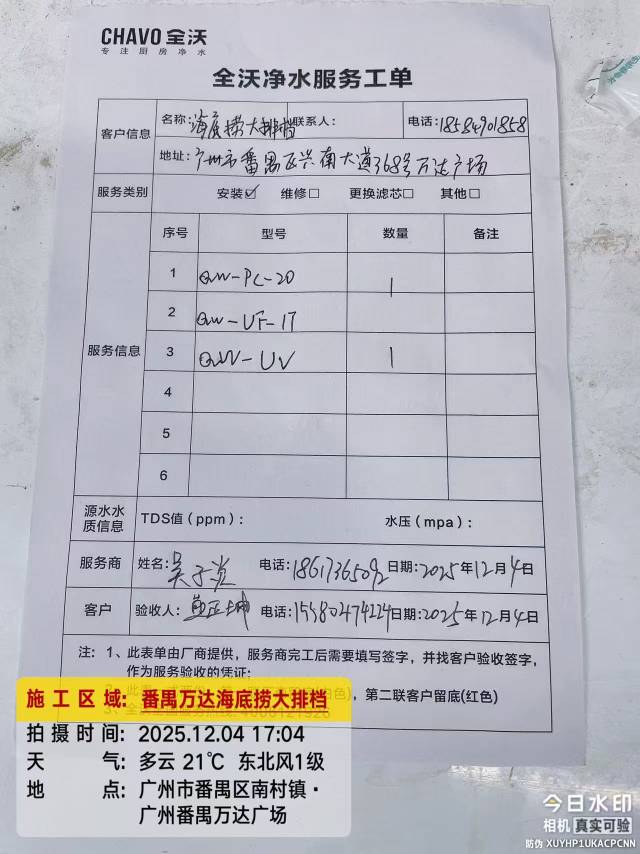 CHAVO 全沃
专注厨房净水
全沃净水服务工单
客户信息 名称: 海底捞大排档 联系人: 电话: 18584901858
地址: 广州市番禺区兴南大道368号万达广场
服务类别 安装☑ 维修□ 更换滤芯□ 其他□
服务信息 序号 型号 数量 备注
1 QW-PC-20 1
2 QW-UF-1T
3 QW-UV 1
4
5
6
源水水质信息 TDS值(ppm): 水压(mpa):
服务商 姓名: 电话: 18617365092 日期: 2025年12月4日
客户 验收人: 电话: 日期: 2025年12月4日
注: 1、此表单由厂商提供,服务商完工后需要填写签字,并找客户验收签字,
作为服务验收的凭证;
第二联客户留底(红色)
施工区域: 番禺万达海底捞大排档
拍摄时间: 2025.12.04 17:04
天气: 多云 21℃ 东北风1级
地点: 广州市番禺区南村镇·
广州番禺万达广场
今日水印
相机 真实可验
防伪 XUYHP1UKACPCNN